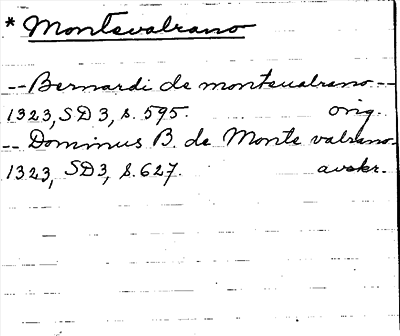 * Montevalrano
-- Bernardi de monteualrano --
1323, SD 3, s. 595. orig.
-- Dominus B. de Monte valrano.
1323, SD 3, s. 627. avskr.